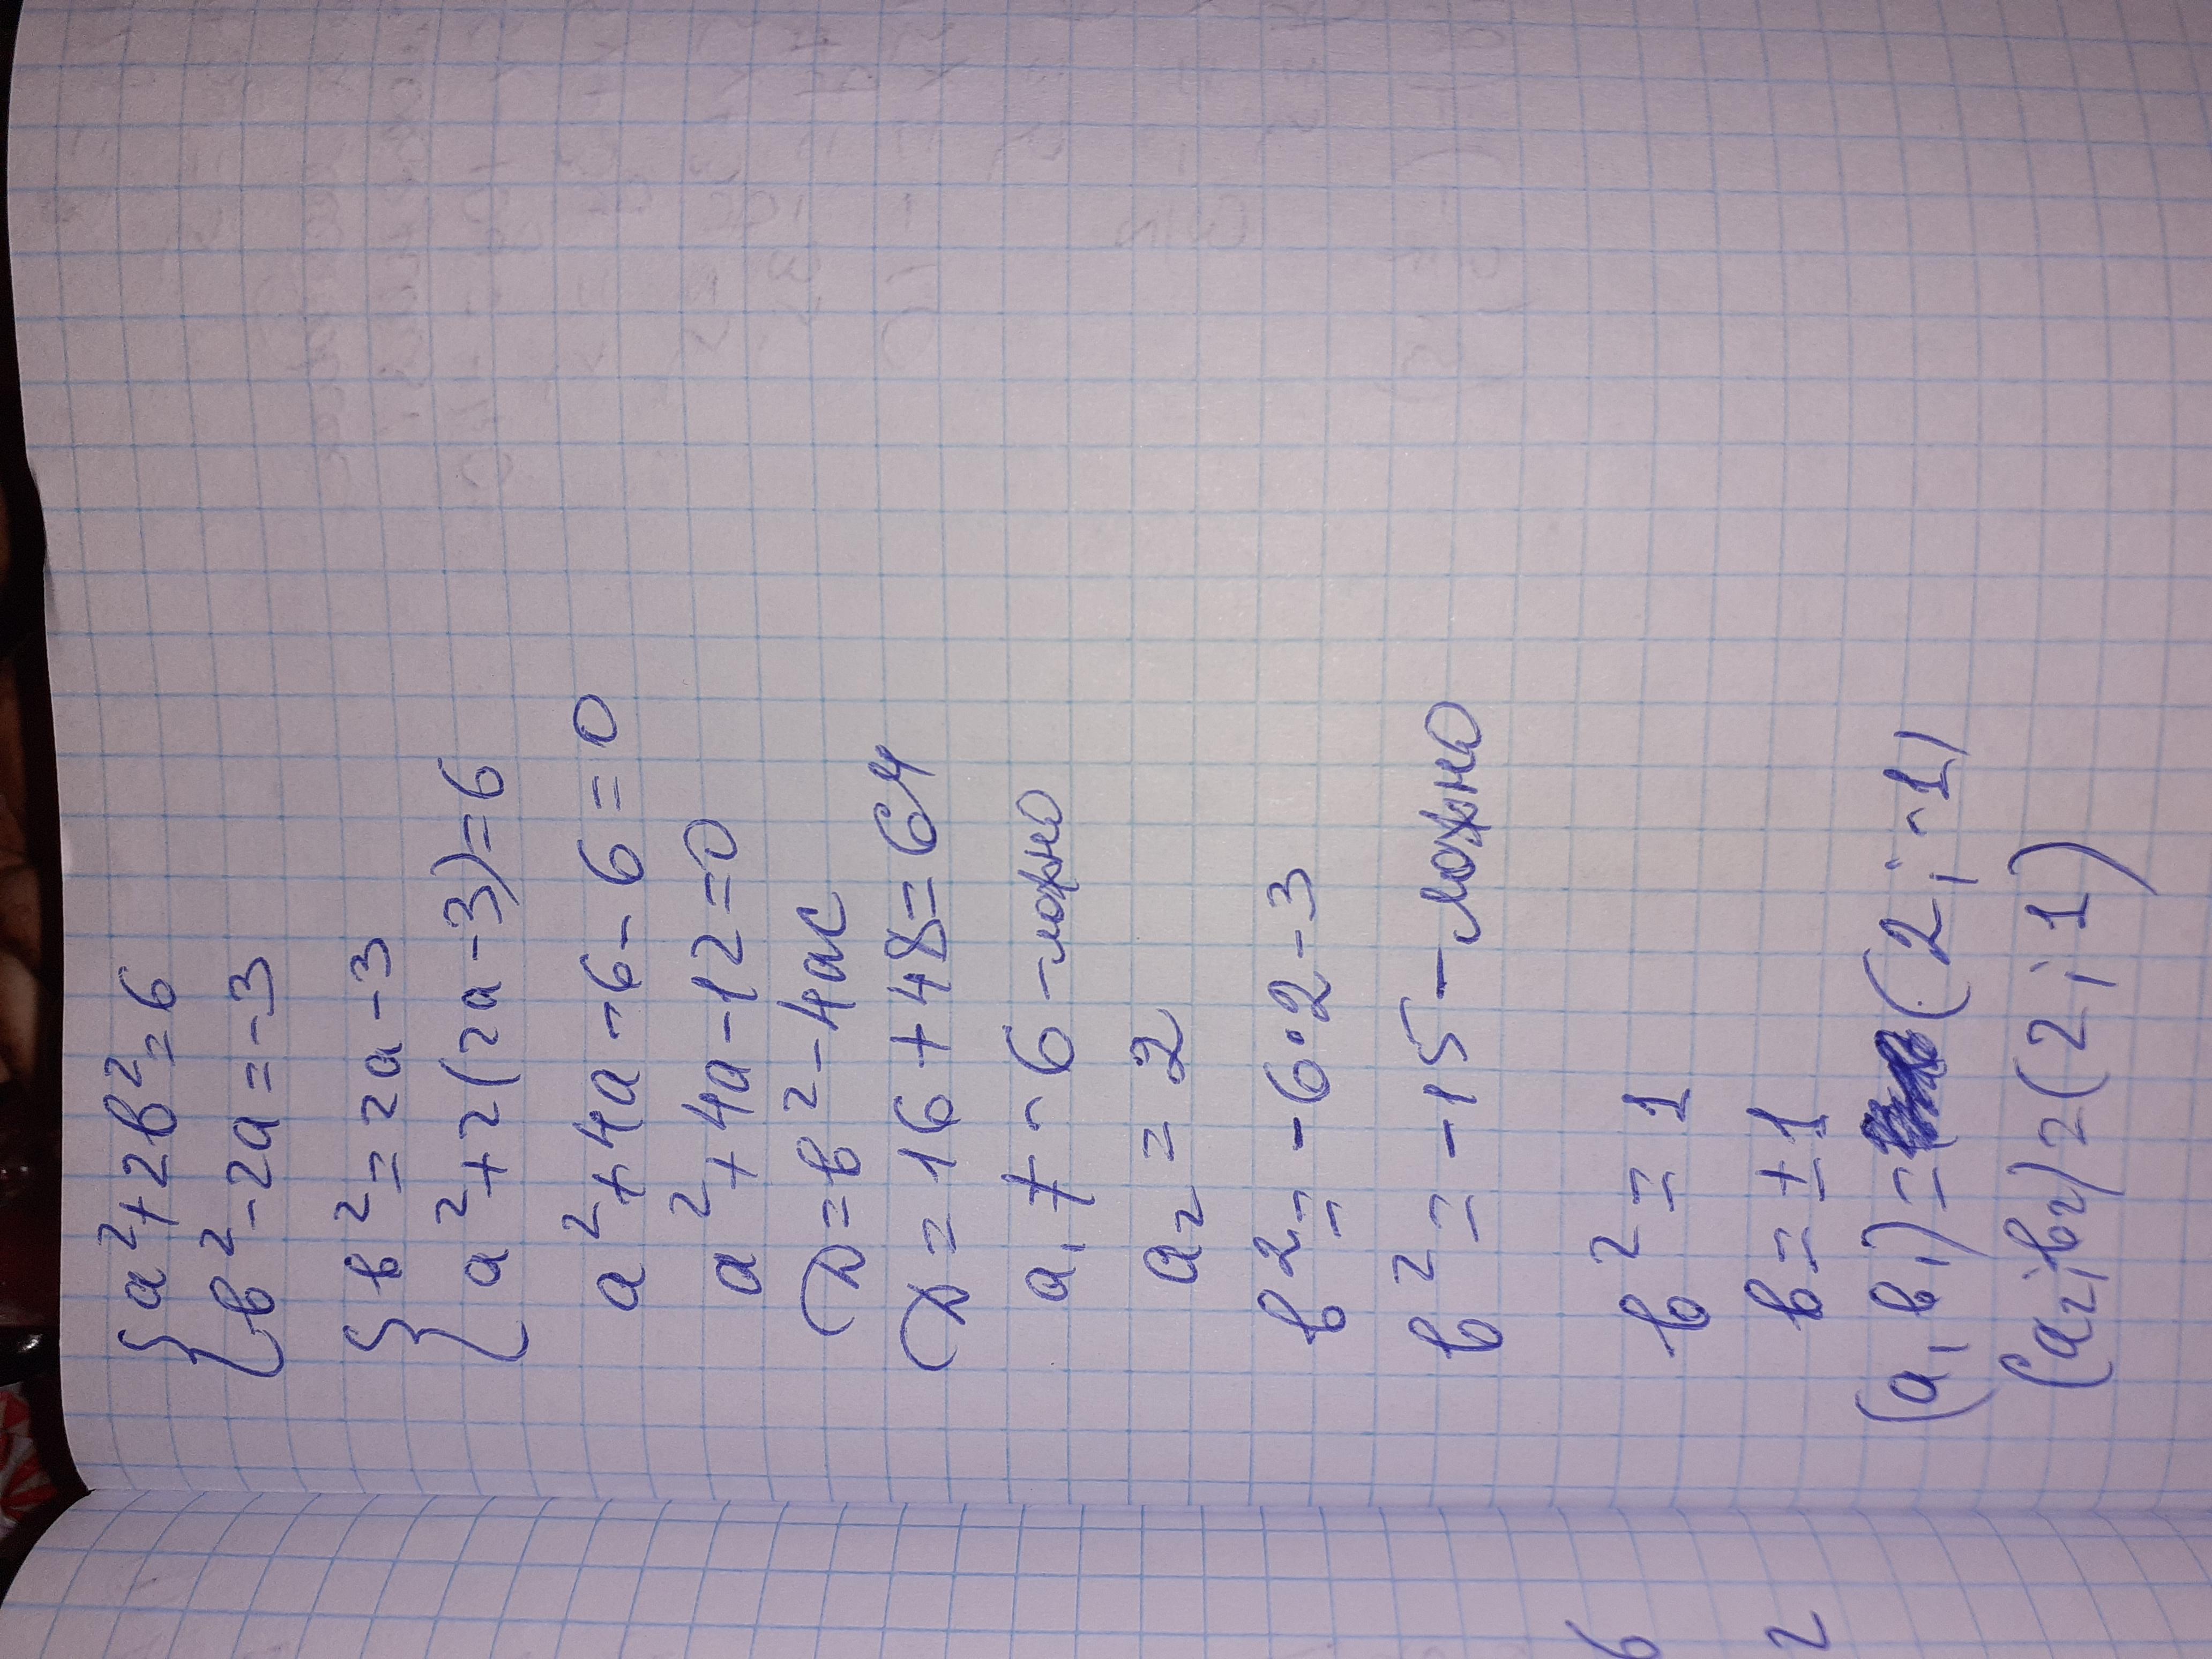 {a²+2в²=6
{в²-2a=-3
{в²=2a-3
{a²+2(2a-3)=6
a²+4a-6-6=0
a²+4a-12=0
D=в²-4ac
D=16+48=64
a₁≠-6-ложно
a₂=2
в²=-6·2-3
в²=-15-ложно
в²=1
в=±1
(a₁в₁)=(2;-1)
(a₂;в₂)2(2;1)
6
2